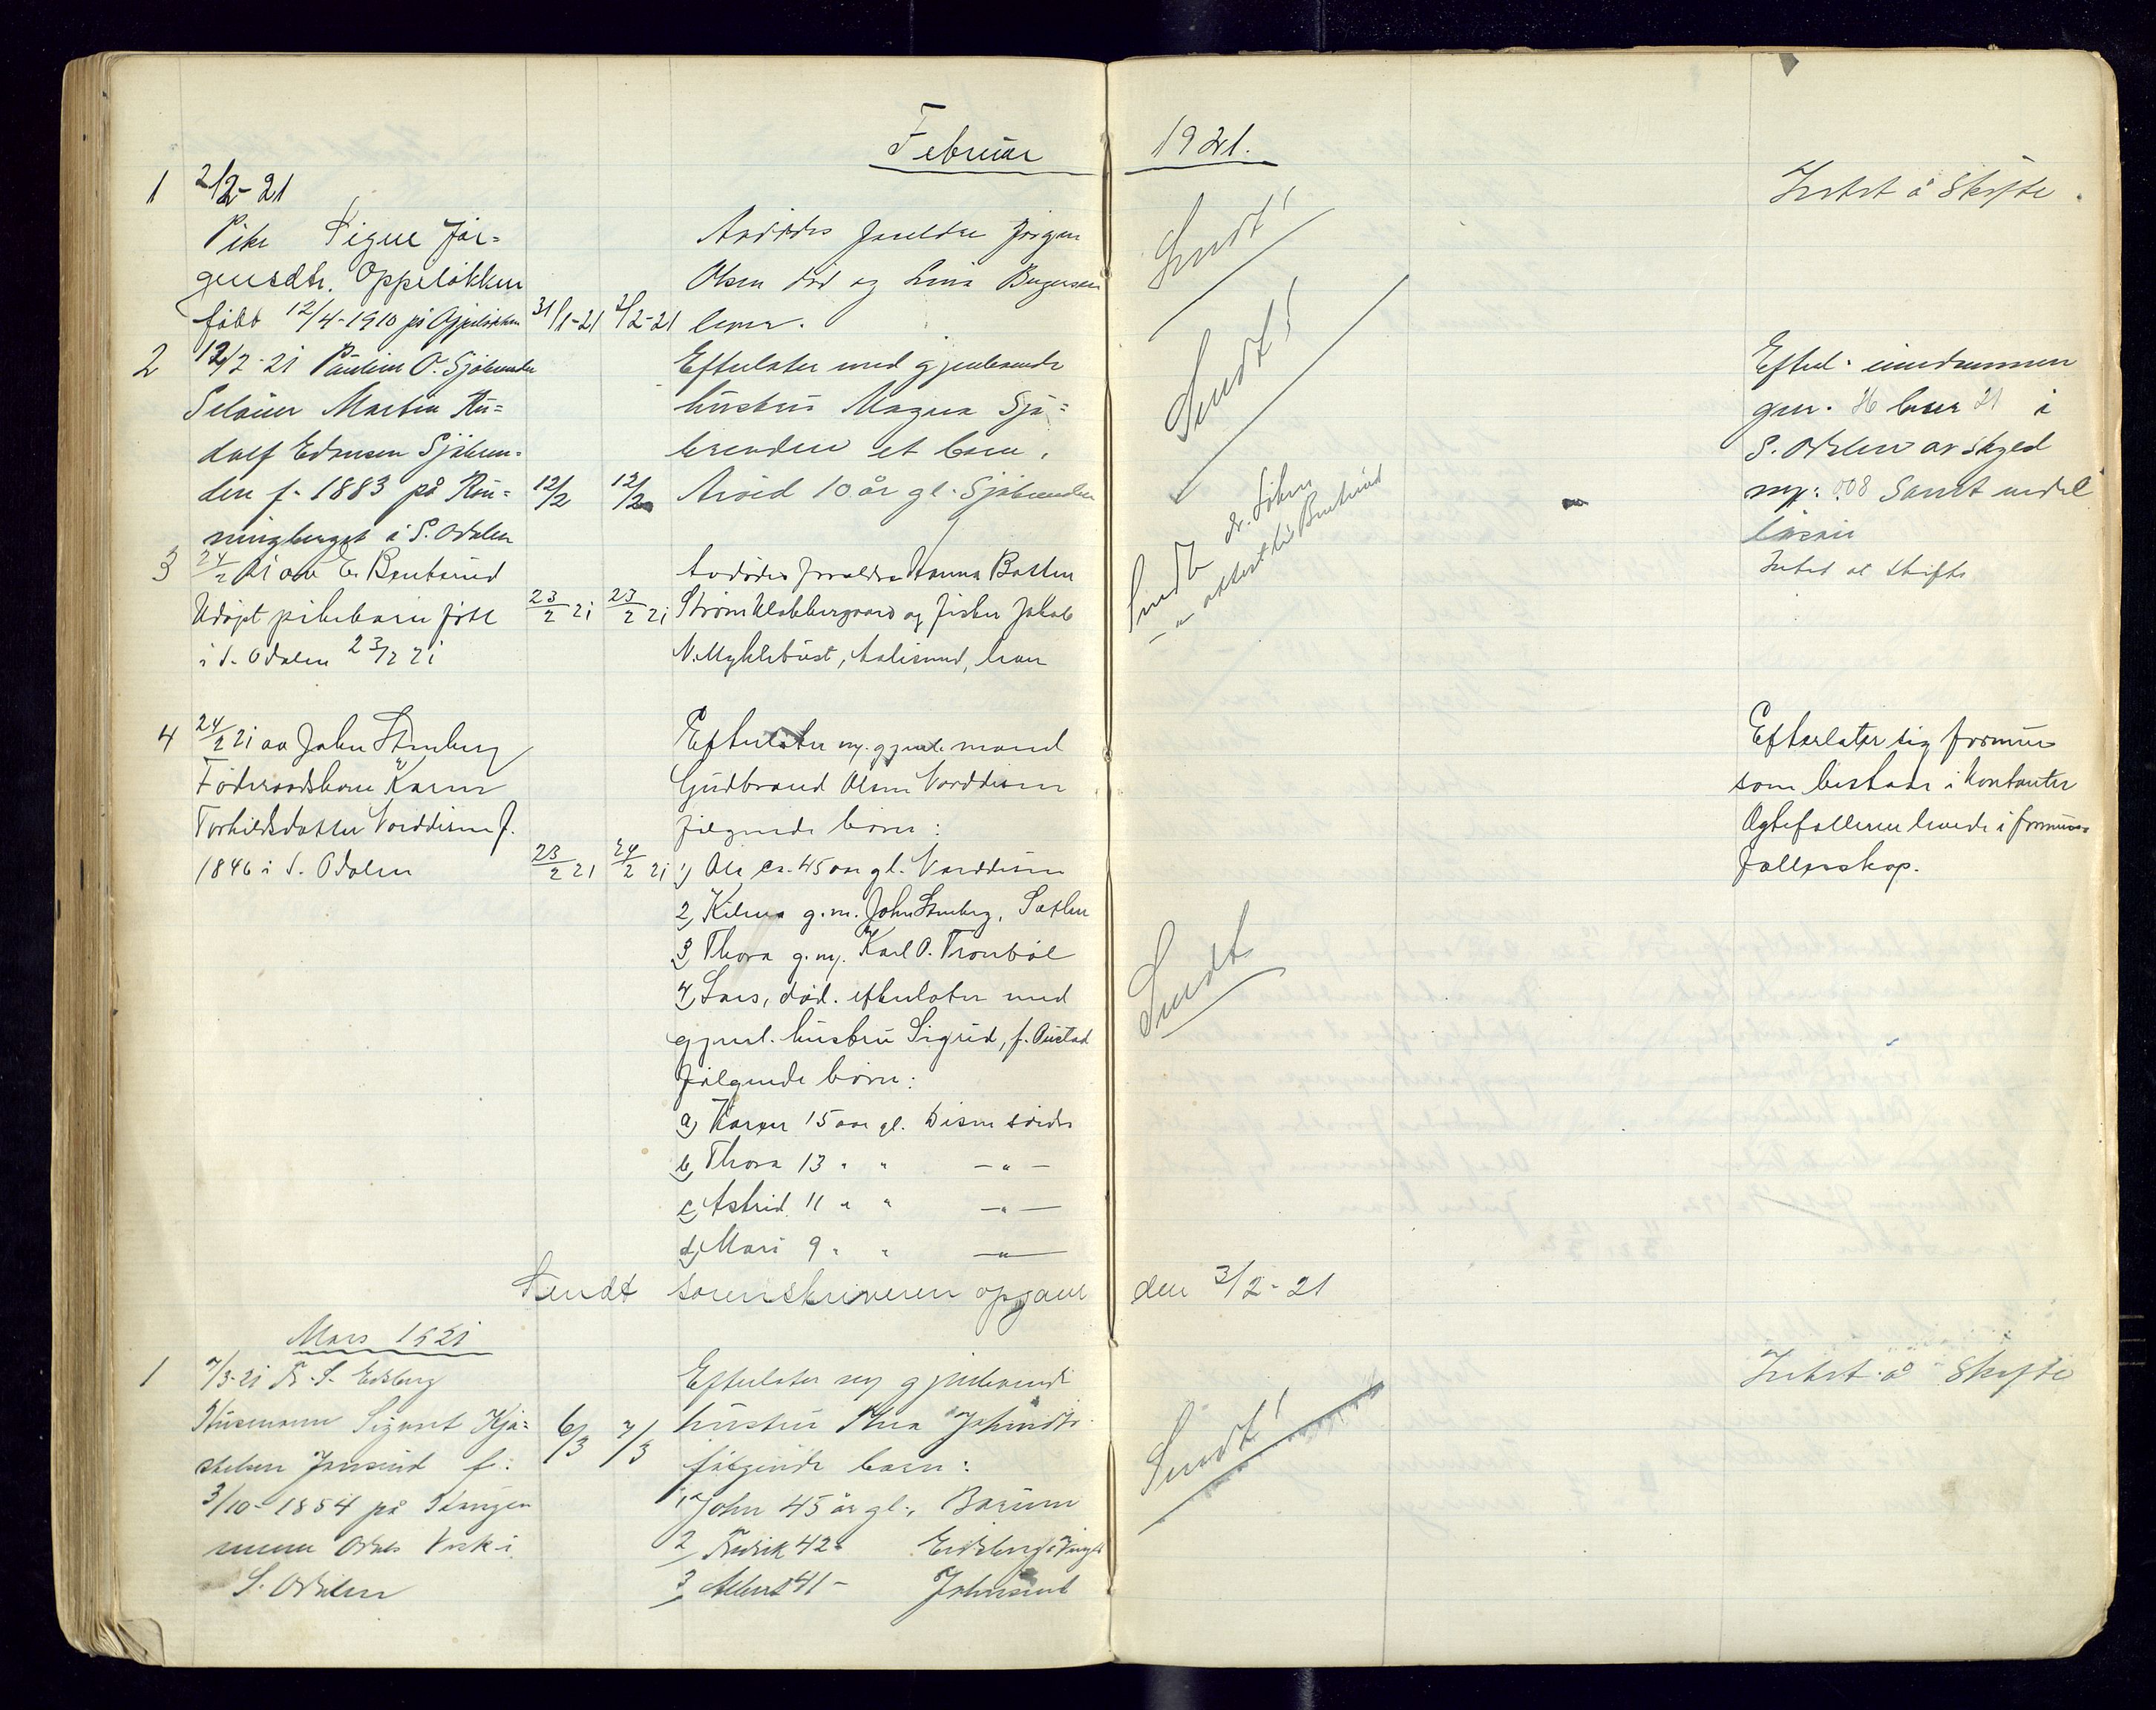 Februar 1921.
1 2/2-21
Pike Signe Jør=
gensdtr. Oppeløkken
født 12/4-1910 på Oppeløkken 31/1-21 2/2-21
Avdødes foreldre Jørgen
Olsen død og Lina
lever.
Sendt!
Intet å skifte.
2 12/2-21 Pauline O. Sjøbrenden
Martin Ru=
dolf Sjøbren=
den f. 1883 på Røn=
ningberget i S. Odalen
12/2 12/2
Efterlater med gjenlevende
hustru Magna Sjø=
brenden et barn.
Arvid 10 år gl. Sjøbrenden
Sendt!
Efterl. eiendommen
gnr. 36 bnr 21 i
S. Odalen av skyld
mrk: 0,08 samt endel
løsøre
3 24/2 21 av E. Bruterud
Udøpt pikebarn født
i S. Odalen 23/2 21
23/2 21 23/2 21
Avdødes foreldre Anna
Strøm og fisker Jakob
N. Myklebust, Aalesund, lever
Sendt dr.
Intet at skifte
4 24/2 21 av John Stenberg
Føderaadskone Karen
Torkildsdatter Norddisen f.
1846 i S. Odalen
23/2 21 24/2 21
Efterlater m. gjenl. mand
Gudbrand Olsen Norddisen
følgende børn:
1) Ole ca. 45 aar gl. Norddisen
2) g.m. John Stenberg, Sæther
3) Thora g.m. Karl O. Tronbøl
4) Lars, død. efterlater med
gjenl. hustru Sigrid, f. Austad
følgende børn:
a) Karen 15 aar gl. Disen søndre
b) Thora 13 " " — " —
c) Astrid 11 " " — " —
d) Mari 9 " " — " —
Sendt
Efterlater sig formue
som bestaar i kontanter
Ægtefællerne levede i formues-
fællesskap.
Sendt sorenskriveren opgave den 3/2-21
Mars 1921
1 7/3-21 Fr. S. Eidsberg
Husmann Sigvart
f.
3/10-1854 på Stangen
Odals Verk i
S. Odalen
6/3 7/3
Efterlater m gjenlevende
hustru Thea
følgende barn:
1, John 45 år gl., Bærum
2, Fredrik 42
3, Albert 41 -
Sendt!
Intet å skifte